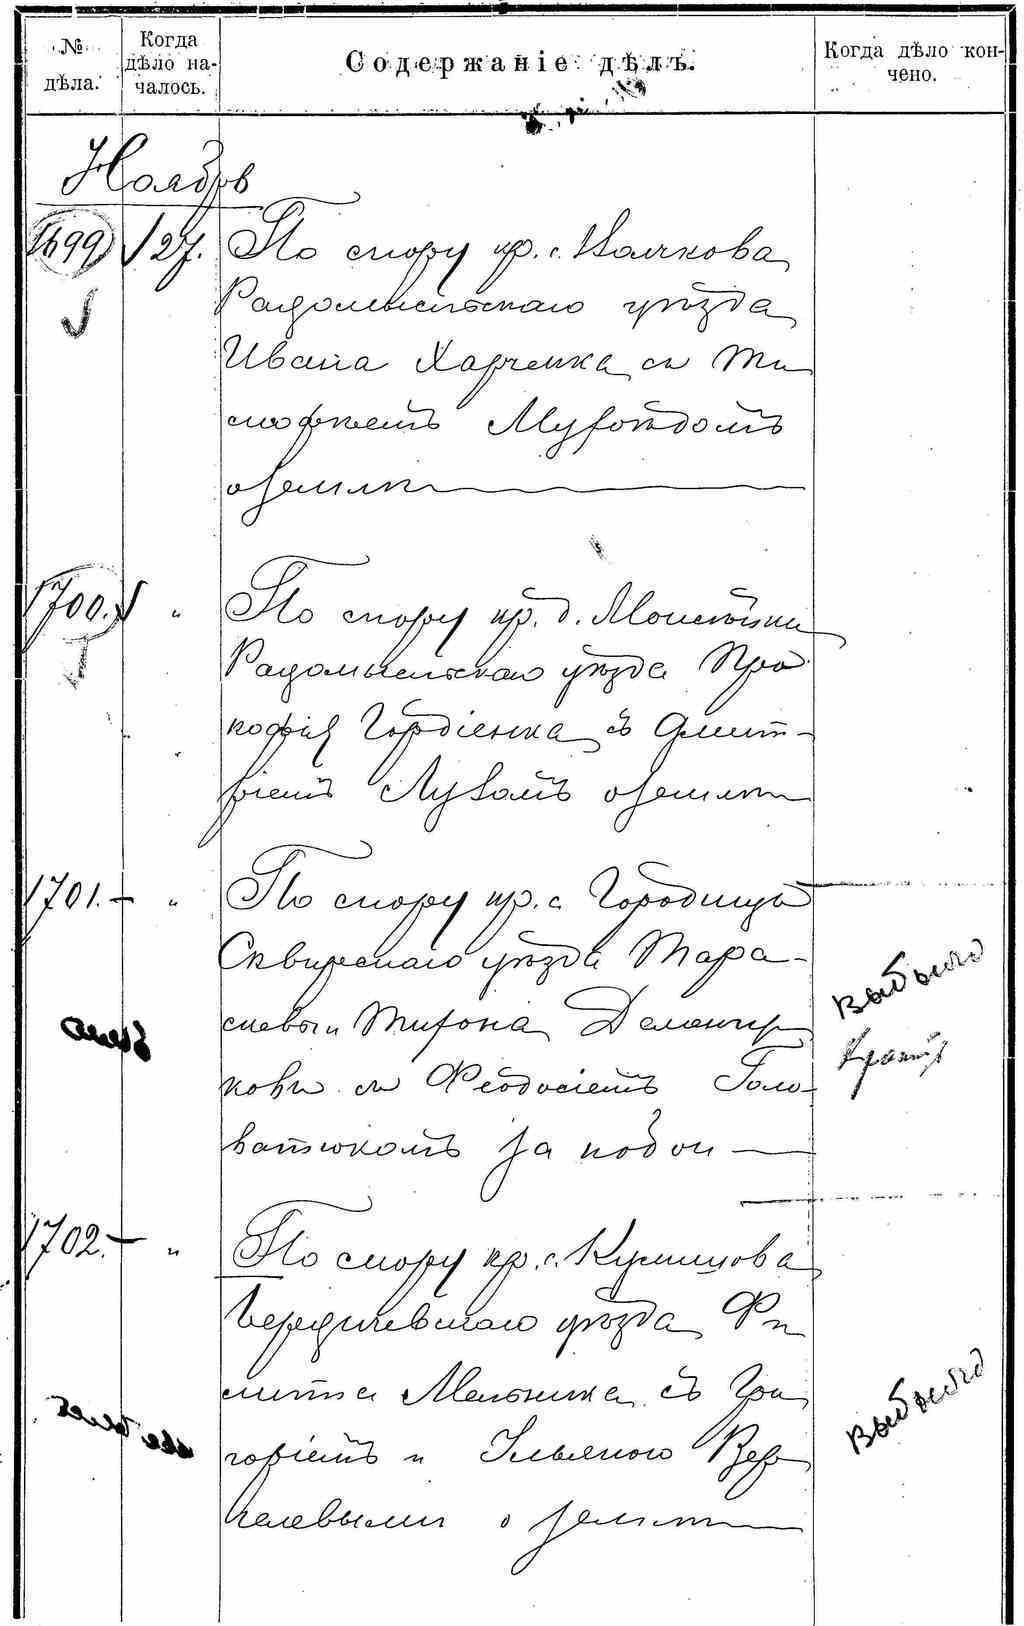 № дѣла.
Когда дѣло началось.
Содержаніе дѣлъ.
Когда дѣло кончено.
Ноябрь
1699 27. По спору кр. с. Волчкова
Радомысльскаго уѣзда
Ивана Харченка съ Ти
мофеемъ
о землѣ
1700. " По спору кр. д. Моисѣйки
Радомысльскаго уѣзда Про
кофія Гордіенка съ Дмит-
ріемъ Лукомъ о землѣ
1701. " По спору кр. с. Городища
Сквирскаго уѣзда Тара-
сія и Тихона
съ Феодосіемъ Голо-
ватюкомъ за побои
выбыло
1702. " По спору кр. с.
Бердичевскаго уѣзда Фи
липпа Мельника съ Гри
горіемъ и Ильяною
о землѣ
выбыло